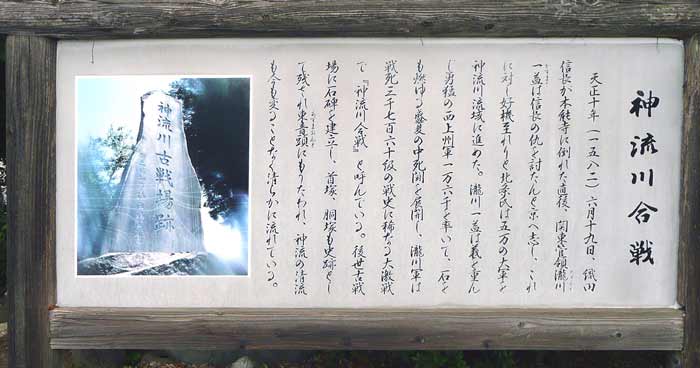 神流川合戦
天正十年（一五八二）六月十九日、織田
信長が本能寺に倒れた直後、関東管領瀧川
一益は信長の仇を討たんと京へ志し、これ
に対し好機至れりと北条氏は五万の大軍を
神流川流域に進めた。瀧川一益は義を重ん
じ勇猛の西上州軍一万六千を率いて、石を
も燃ゆる盛夏の中死闘を展開し、瀧川軍は
戦死三千七百六十級の戦史に稀なる大激戦
で『神流川合戦』と呼んでいる。後世古戦
場に石碑を建立し、首塚、胴塚も史跡とし
て残され東音頭にもうたわれ、神流の清流
も今も変ることなく清らかに流れている。
神流川古戰場跡